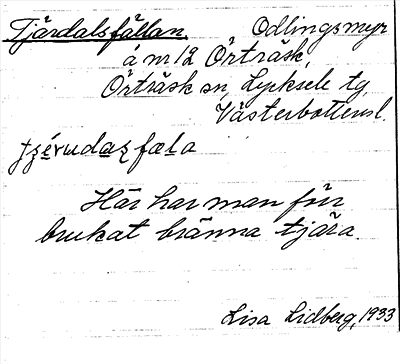 Tjärdalsfällan Odlingsmyr
å nr 12 Örträsk,
Örträsk sn, Lycksele tg,
Västerbottensl.
Här har man förr
brukat bränna tjära.
Lisa Lidberg, 1933